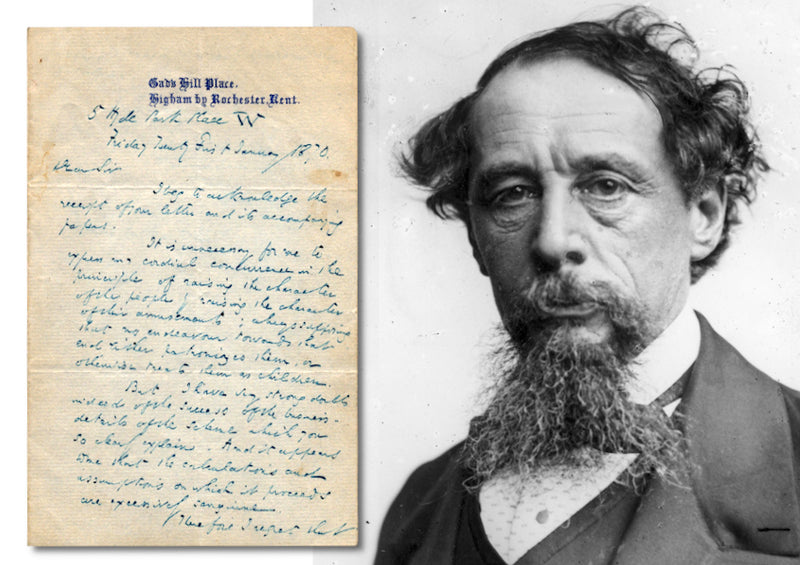 Gad's Hill Place.
Higham by Rochester, Kent.
5 Hyde Park Place W
Friday Twenty First January 1870.
Dear Sir
I beg to acknowledge the
receipt of your letter and its accompanying
papers.
It is unnecessary for me to
express my cordial concurrence in the
principle of raising the character
of the people by raising the character
of their amusements; always supposing
that no endeavour towards that
end either patronizes them, or
otherwise treats them as children.
But I have very strong doubts
indeed of the success of the business-
details of the scheme which you
so clearly explain. And it appears
to me that the calculations and
assumptions on which it proceeds
are excessively sanguine.
Therefore I regret that